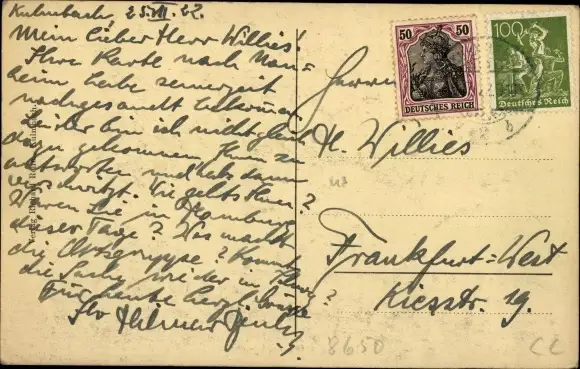 Kulmbach, 25.VII.22.
Mein lieber Herr Willies!
Ihre Karte nach Mann=
heim habe seinerzeit
nachgesandt bekommen
leider bin ich nicht gleich
dazu gekommen Ihnen zu
antworten und hab dann
Wie geht's Ihnen?
Waren Sie in Hamburg
dieser Tage? Was macht
die Ortsgruppe? kommt
die Sache wieder in
Für heute herzl. Grüsse
Ihr Helmer
50 50
DEUTSCHES REICH
100
Deutsches Reich
Herrn
H. Willies
Frankfurt=West
Kiesstr. 19.
8650